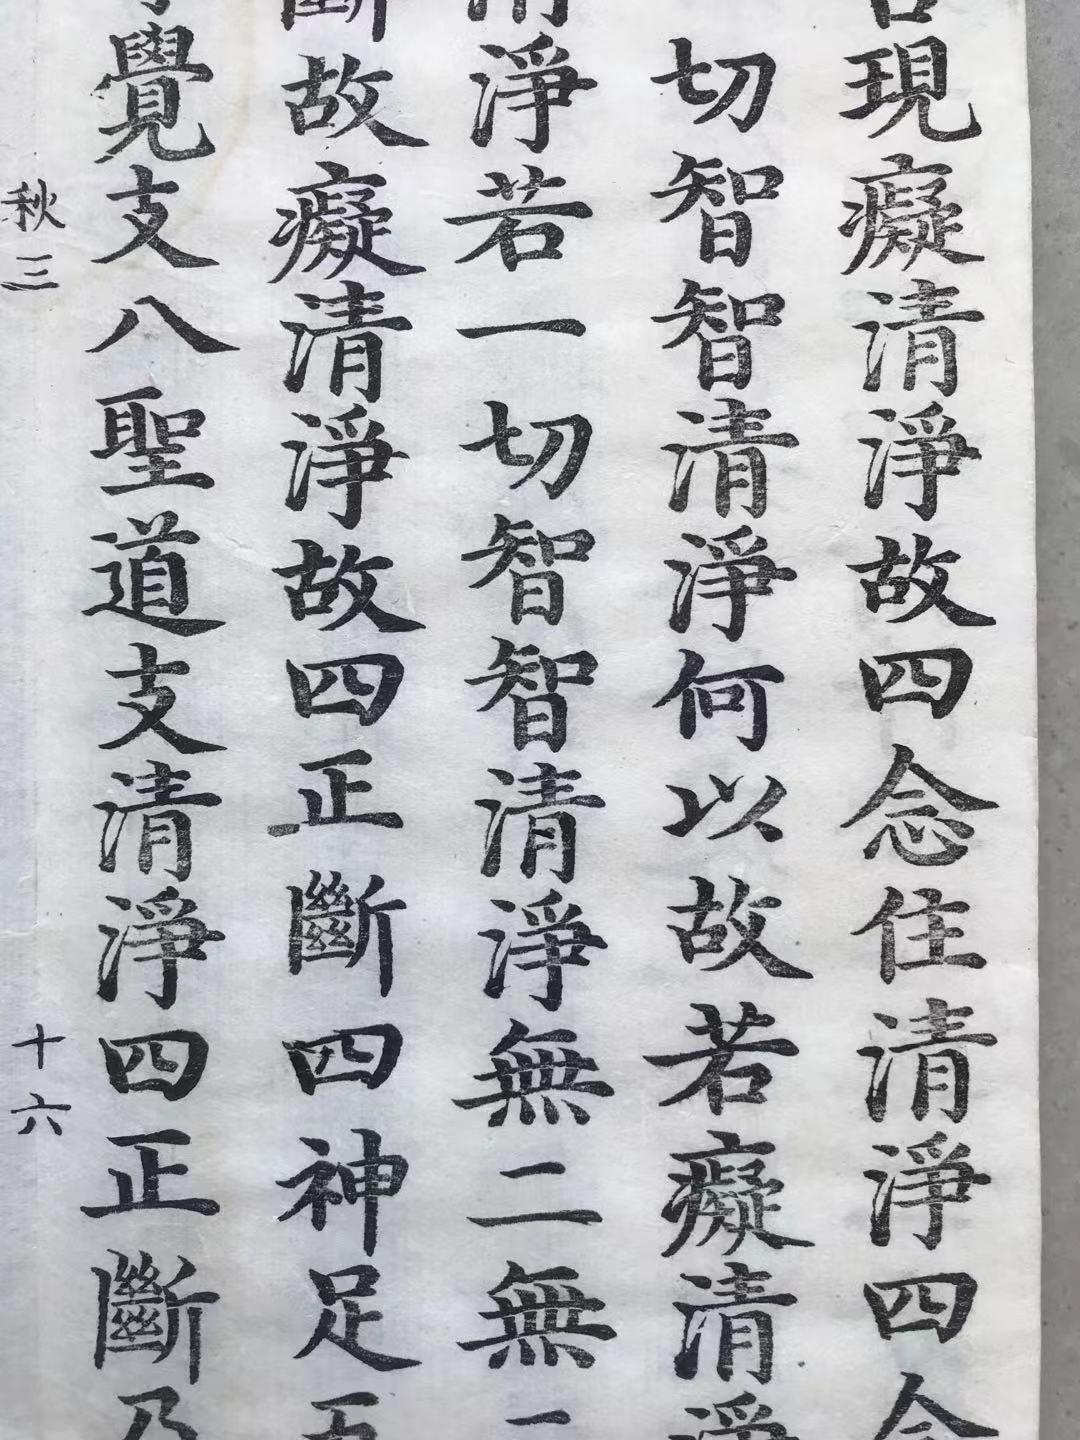 現癡清淨故四念住清淨四念
切智智清淨何以故若癡清淨
清淨若一切智智清淨無二無二
斷故癡清淨故四正斷四神足五
覺支八聖道支清淨四正斷乃
秋三 十六